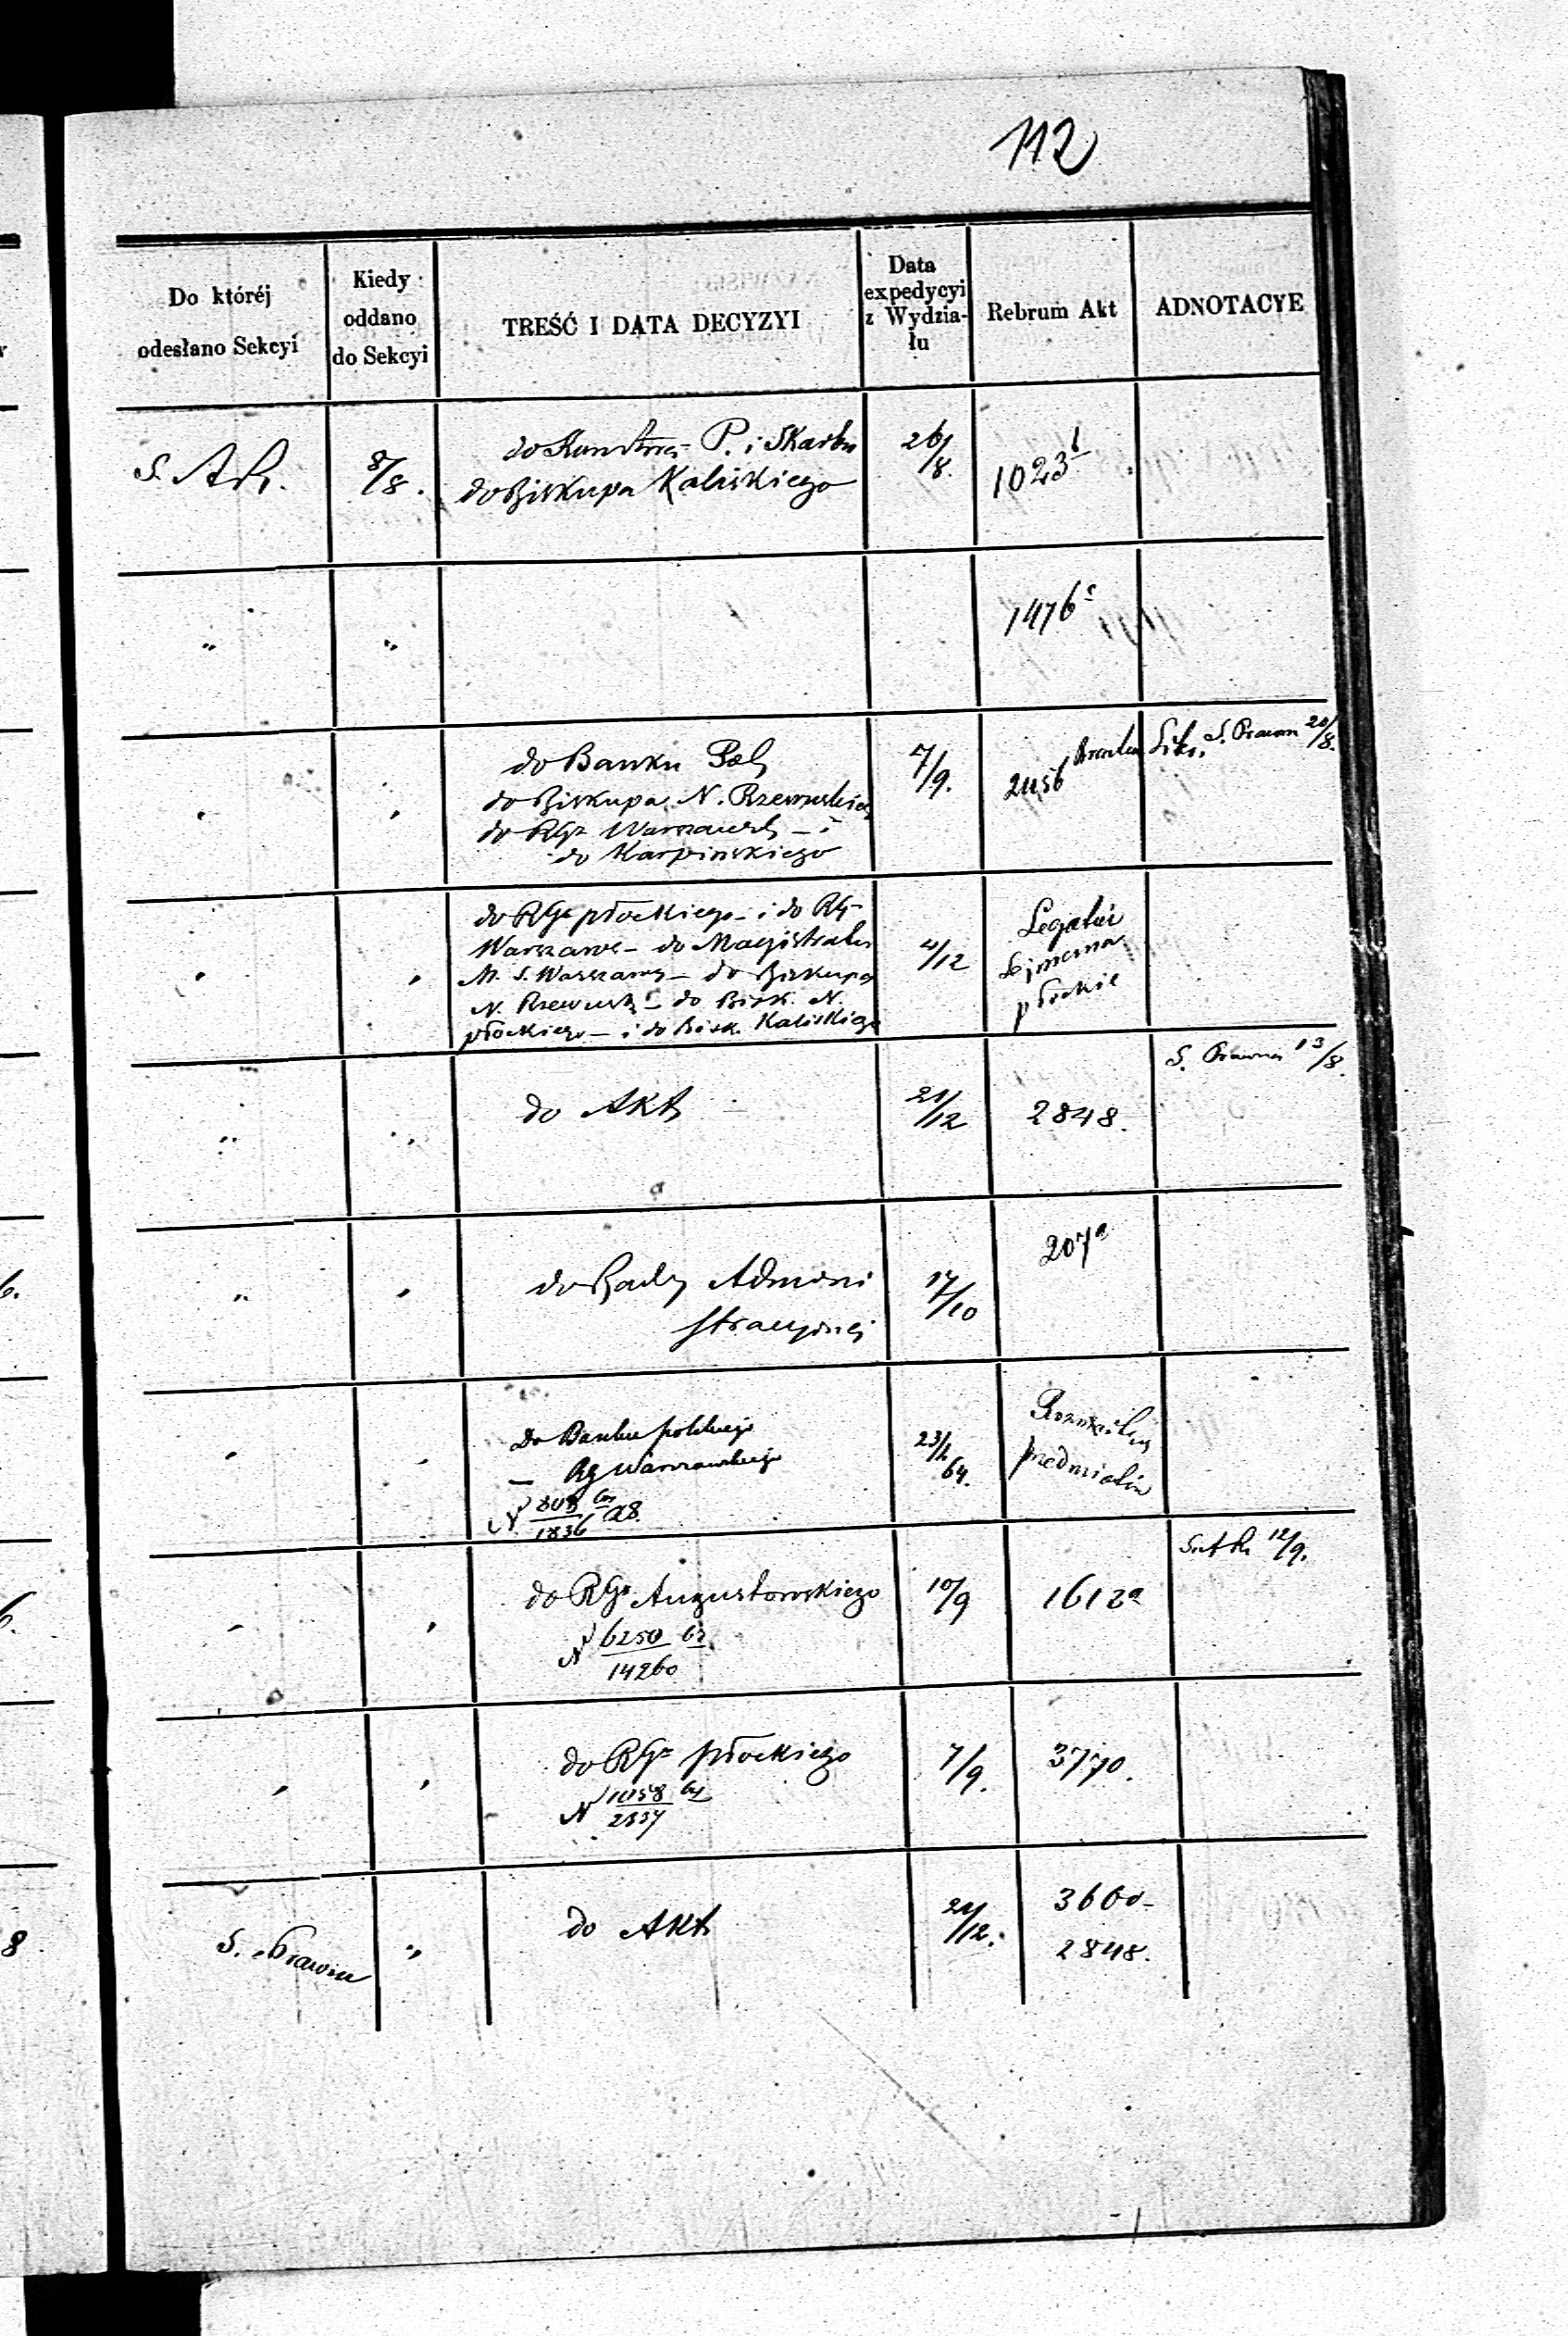 112
Do któréj odesłano Sekcyi
Kiedy oddano do Sekcyi
TREŚĆ I DATA DECYZYI
Data expedycyi z Wydzia-łu
Rebrum Akt
ADNOTACYE
S. A R.
8/8.
do P. i Skarbu
do Biskupa Kaliskiego
26/8.
1023 b
"
"
1476 c
"
"
do Banku Pol
do Biskupa N. Rzewuskiego
do RGo Warszawsk – i
do Karpińskiego
7/9.
2456
S. Prawn 20/8.
"
"
do RGo płockiego – i do RG
Warszaws – do Magistratu
M. S. Warszawy – do Biskupa
N. Rzewusk – do Bisk. N.
płockiego – i do Bisk. Kaliskiego
4/12
Legatów
płockie
"
"
do Akt
21/12
2848.
S. Prawna 13/8.
"
"
do Rady Admini
stracyjnej
17/10
207a
"
"
Do Banku polskiego
— RG Warszawskiego
N 1836
23/2 64.
przedmiotów
"
"
do RGo Augustowskiego
N 6250 63
14260
10/9
1612a
12/9.
"
"
do RGo płockiego
N 1058
2337
7/9.
3770.
S. Prawna
"
do Akt
21/12.
3660–
2848.